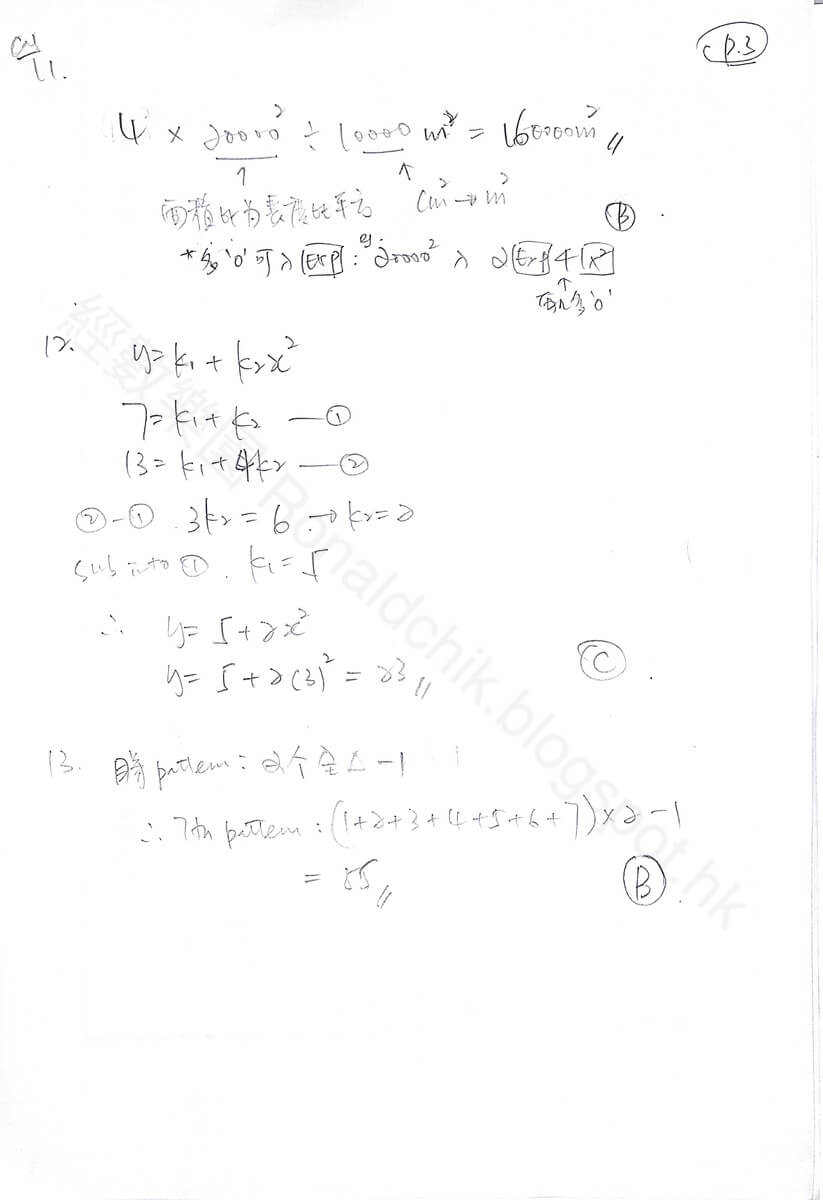 p.3
11.
4 × 20000² ÷ 10000 m² = 160000m²
面積比為長度比平方 cm² → m²
B
*多'0'可入 Exp : 20000² 入 2 Exp 4 x²
'0'
12. y = k₁ + k₂x²
7 = k₁ + k₂ — ①
13 = k₁ + 4k₂ — ②
② - ① . 3k₂ = 6 → k₂ = 2
sub into ① . k₁ = 5
∴ y = 5 + 2x²
y = 5 + 2(3)² = 23
C
13. pattern : 2个全△ - 1
∴ 7th pattern : (1+2+3+4+5+6+7) × 2 - 1
= 55
B
經數樂園 Ronaldchik.blogspot.hk